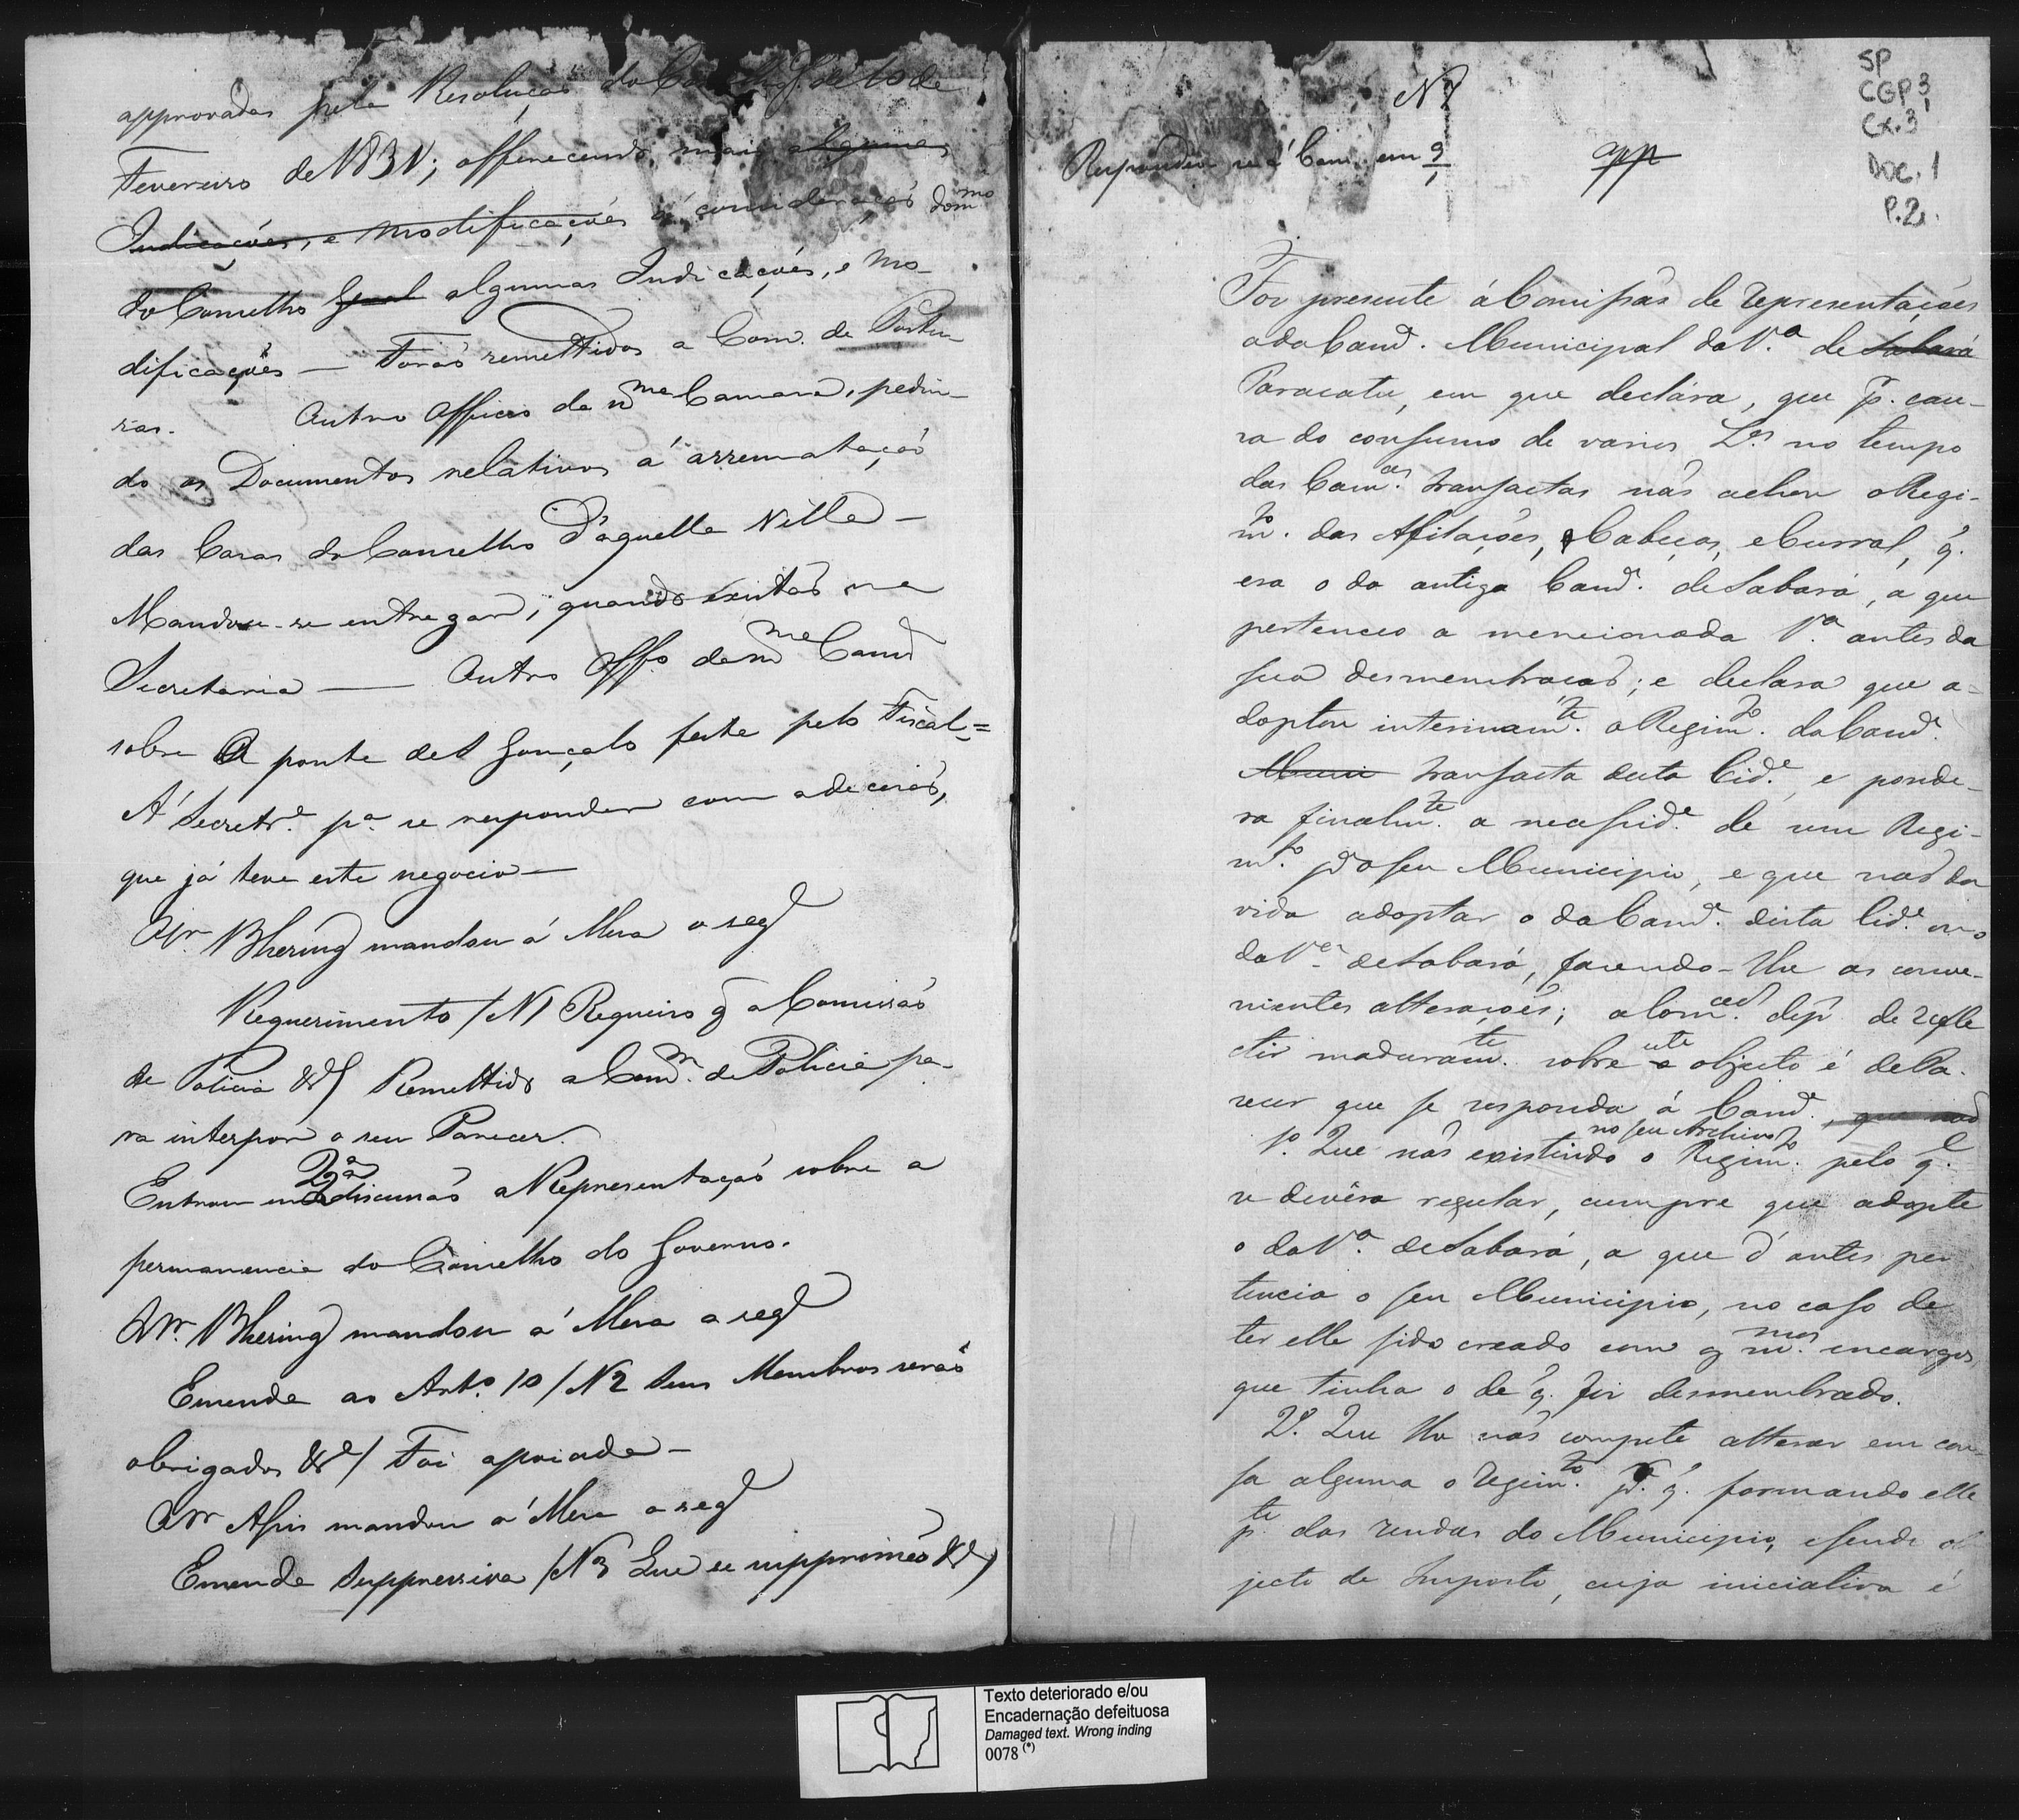 approvadas pela Resolução do Cons de 10 de
Fevereiro de 1831; offerecendo mais algumas
Indicações, e modificações á consideração do mmo
do Conselho Geral algumas Indicações, e Mo-
dificações — Forão remettidos a Com. de Postu
ras. Outro Officio da mma Camara, pedin-
do os Documentos relativos á arrematação
das Casas do Conselho d'aquella Villa —
Mandou-se entregar, quando existão na
Secretaria — Outro Offo da mma Camª
sobre a ponte de S Gonçalo feita pelo Fiscal =
Á Secretrª pª se responder com a decisão,
que já teve este negocio —
O Sr Bhering mandou á Mesa o segᵉ
Requerimento / N1 Requeiro q̃ a Comissão
de Policia &ª / Remettido a Comm. de Policia pa-
ra interpor o seu Parecer.
Entrou em 2ª discussão a Representação sobre a
permanencia do Conselho do Governo.
O Sr. Bhering mandou á Mesa a segᵉ
Emenda ao Artº 10 / N2 Seus Membros serão
obrigados &ª / Foi apoiada —
O Sr Assis mandou á Mesa a segᵉ
Emenda Suppressiva / N3 Que se supprimão &ª /
SP
CGP 3
Cx. 3
DOC. 1
P. 2.
Nº
Respondeu se á Cam. em 9
app
Foi presente á Comissão de representações
a da Camª. Municipal da Vª de Sabará
Paracatu, em que declára, que p. cau-
sa do consumo de varios Lºs no tempo
das Camªs. transactas não achou o Regi-
mto. das Afilações, Cabeças, e Curral, q̃.
era o da antiga Camª. de Sabará, a que
pertenceo a mencionada Vª antes da
sua desmembração; e declara que a-
doptou interinamte. o Regimto. da Camª.
Muni transacta desta Cidᵉ, e ponde-
ra finalmte. a necessidᵉ. de um Regi-
mto. pª o seu Municipio, e que não du
vida adoptar o da Camª. desta Cidᵉ. ou o
da Vª. de Sabará, fazendo-lhe as conve-
nientes alterações; a Com. dep. de refle
ctir maduramte. sobre este objecto é de Pa-
recer que se responda á Camª., que não
1º. Que não existindo no seu Archivo o Regimto. pelo q̃l.
se devêra regular, cumpre que adopte
o da Vª. de Sabará, a que d'antes per
tencia o seu Municipio, no caso de
ter elle sido creado com os mmos. encargos,
que tinha o de q̃. foi desmembrado.
2º. Que lhe não compete alterar em cou-
sa alguma o regimto. pr. q̃. formando elle
pte. das rendas do Municipio, e sendo ob
jecto de Imposto, cuja iniciativa é
Texto deteriorado e/ou
Encadernação defeituosa
Damaged text. Wrong inding
0078 (*)